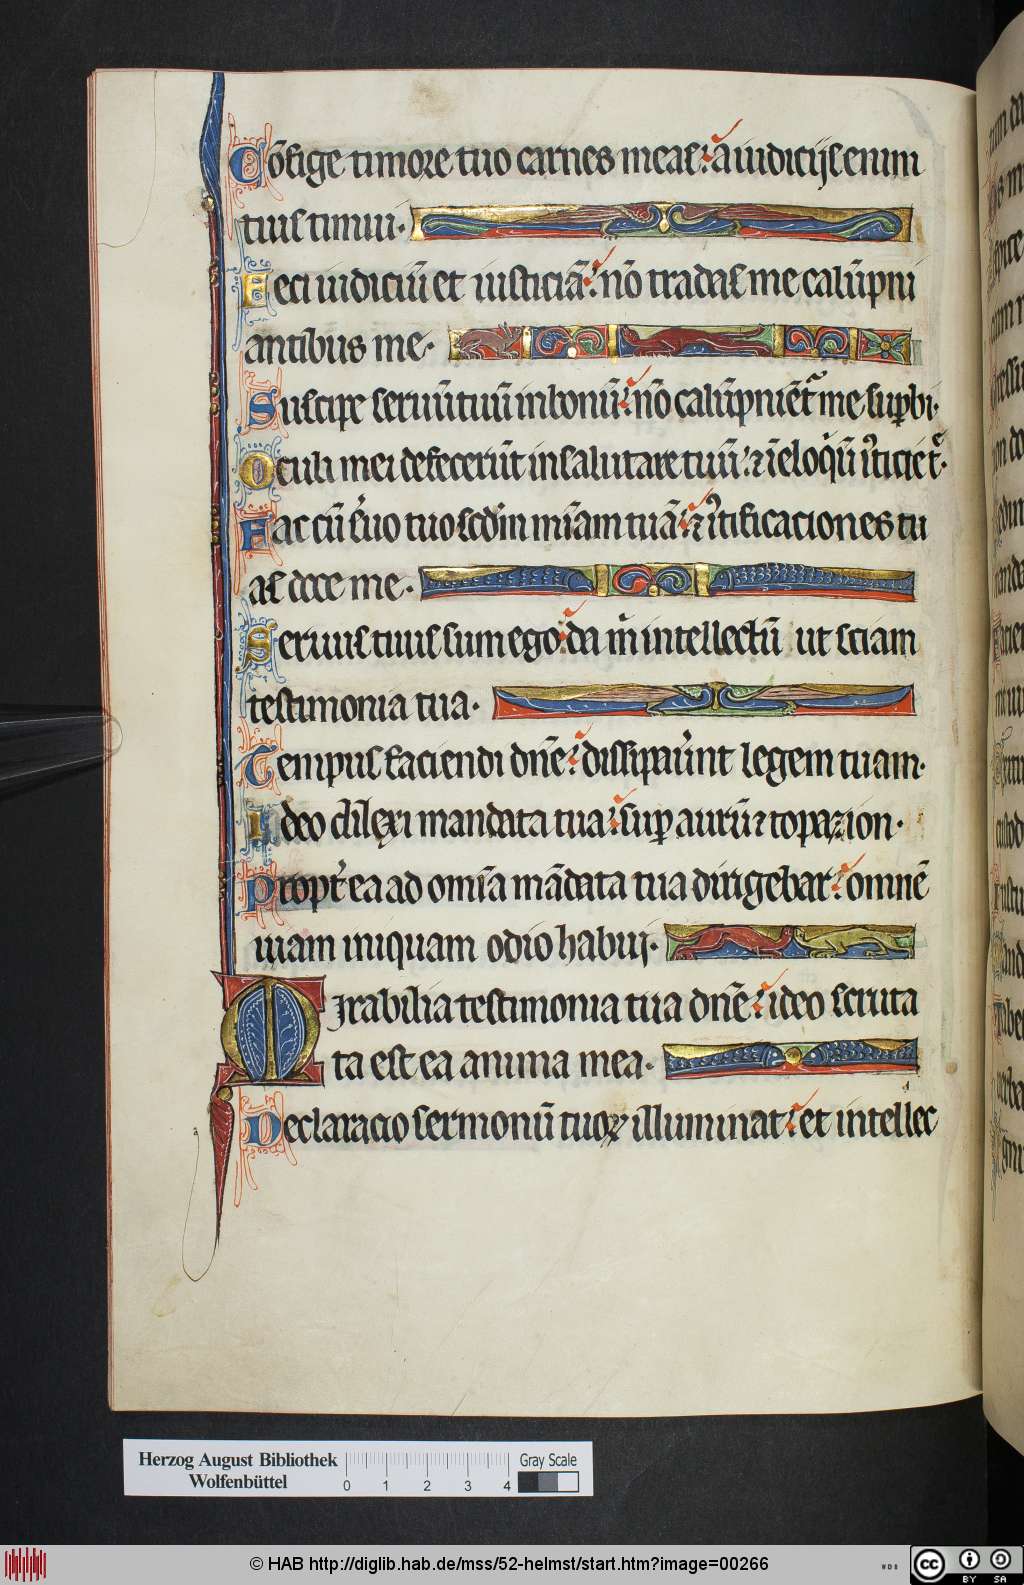 Cōfige timore tuo carnes meas: a iudicijs enim
tuis timui.
Feci iudiciū et iusticiā: nō tradas me calūpni
antibus me.
Suscipe seruū tuū in bonū: nō calūpniēt᷑ me supbi.
Oculi mei defecerūt in salutare tuū: ⁊ ī eloq̄ū iusticie t᷑.
Fac cū s̓uo tuo scd̄m mīam tuā: ⁊ iustificaciones tu
as doce me.
Seruus tuus sum ego: da m̄ intellectū ut sciam
testimonia tua.
Tempus faciendi dn̄e: dissipau̓nt legem tuam.
Ideo dilexi mandata tua: sup aurū ⁊ topazion.
Propt̓ea ad omīa mādata tua dirigebar: omnē
uiam iniquam odio habui.
Mirabilia testimonia tua dn̄e: ideo scruta
ta est ea anima mea.
Declaracio sermonū tuoꝝ illuminat: et intellec
Herzog August Bibliothek
Wolfenbüttel
0 1 2 3 4
Gray Scale
© HAB http://diglib.hab.de/mss/52-helmst/start.htm?image=00266
WDB
cc BY SA